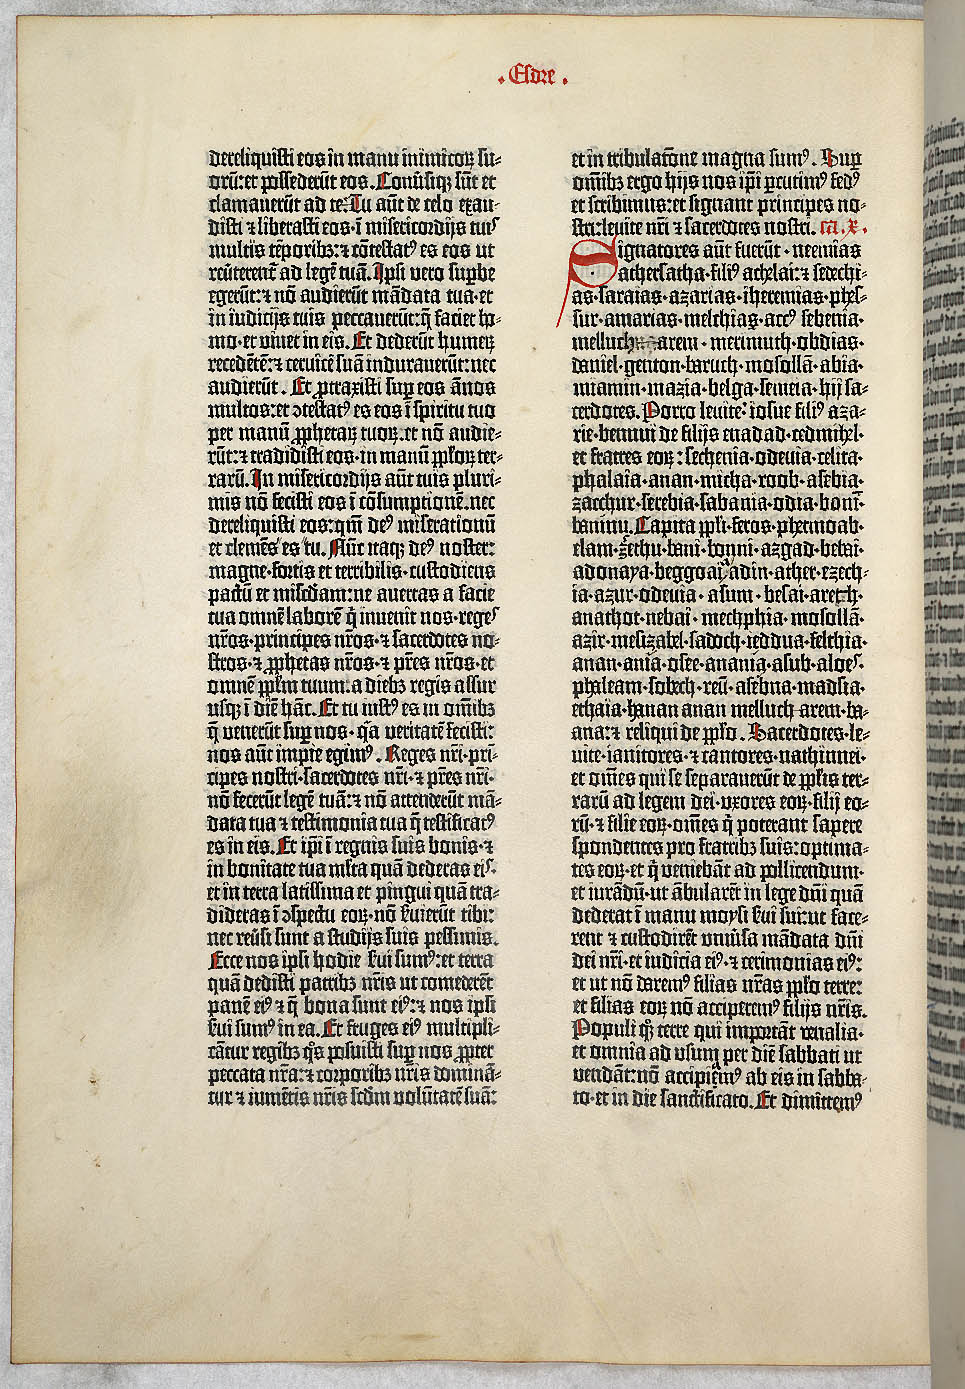 . Esdre .
dereliquisti eos in manu inimicoꝝ su⸗
oꝝ: et possederūt eos. Conūsiqꝫ sūt et
clamauerūt ad te. Tu aūt de celo exau⸗
disti ⁊ liberasti eos · ī misericordijs tuꝭ
multis tēporibꝫ: ⁊ cōtestatꝰ es eos ut
reūterent᷑ ad legē tuā. Ipsi vero supbe
egerūt: ⁊ nō audierūt mādata tua · et
in iudicijs tuis peccauerūt: q̄ faciet ho⸗
mo · et viuet in eis. Et dederūt humeꝝ
recedētē: ⁊ ceruicē suā indurauerūt: nec
audierūt . Et ꝓtraxisti sup eos ānos
multos: et ↄtestatꝰ es eos ī spiritu tuo
per manū ꝓphetaꝝ tuoꝝ. et nō audie⸗
rūt: ⁊ tradidisti eos · in manū ppl̄oꝝ ter⸗
rarū. In misericordijs aūt tuis pluri⸗
mis nō fecisti eos ī cōsumptionē. nec
dereliquisti eos: qm̄ deꝰ miserationū
et clemēs es tu. Nūc itaqꝫ deꝰ noster:
magne · fortis et terribilis · custodiens
pactū et mīcdiam: ne auertas a facie
tua omnē laborē q̄ inuenit nos · regeꝭ
nr̄os · principes nr̄os · ⁊ sacerdotes no⸗
stros · ⁊ ꝓphetas nr̄os · ⁊ pr̄es nr̄os · et
omnē ppl̄m tuum. a diebꝫ regis assur
usqꝫ ī diē hāc. Et tu iustꝰ es in om̄ibꝫ
q̄ venerūt sup nos · q̄a veritatē fecisti:
nos aūt impie egimꝰ . Reges nr̄i · pri⸗
cipes nostri · sacerdotes nr̄i · ⁊ pr̄es nr̄i ·
nō fecerūt legē tuā: ⁊ nō attenderūt mā⸗
data tua ⁊ testimonia tua q̄ testificatꝰ
es in eis. Et ip̄i ī regnis suis bonis · ⁊
in bonitate tua ml̄ta quā dederas eiꝭ ·
et in terra latissima et pingui quā tra⸗
dideras ī ↄspectu eoꝝ · nō s̄uierūt tibi:
nec reūsi sunt a studijs suis pessimis.
Ecce nos ipsi hodie s̄ui sumꝰ: et terra
quā dedisti patribꝫ nr̄is ut comederēt
panē eiꝰ ⁊ q̄ bona sunt eiꝰ: ⁊ nos ipsi
s̄ui sumꝰ in ea. Et fruges eiꝰ multipli⸗
cātur regibꝫ q̊s posuisti sup nos ꝓpter
peccata nr̄a: ⁊ corporibꝫ nr̄is dominā⸗
tur ⁊ iumētis nr̄is scd̄m volūtatē suā:
et in tribulatōne magna sumꝰ. Sup
om̄ibꝫ ergo hijs nos ip̄i ꝑcutimꝰ fedꝰ
et scribimus: et signant principes no⸗
stri: leuite nr̄i ⁊ sacerdotes nostri. ca. x.
Signatores aūt fuerūt · neemias
athersatha · filiꝰ achelai: ⁊ sedechi⸗
as · saraias · azarias · iheremias · phes⸗
sur · amarias · melchias · accꝰ sebenia ·
melluch · arem · merimuth · obdias ·
daniel · genton · baruch · mosollā · abia ·
miamin · mazia · belga · semeia · hij sa⸗
cerdotes. Porro leuite: iosue filiꝰ aza⸗
rie · bennui de filijs enadad · cedmihel ·
et fratres eoꝝ: sechenia · odeuia · celita ·
phalaia · anan · micha · roob · asebia ·
zacchur · serebia · sabania · odia · boni ·
baninu. Capita ppl̄i · feros · phetmoab ·
elam · zethu · bani · bonni · azgad · bebai ·
adonaya · beggoai · adin · ather · ezech⸗
ia · azur · odeuia · asum · besai · areth ·
anathot · nebai · mechphia · mosollā ·
azir · mesizabel · sadoch · ieddua · felthia ·
anan · ania · osee · anania · asub · aloeꝭ ·
phaleam · sobech · reū · asebna · madsia ·
echaia · hanan anan melluch arem · ba⸗
ana: ⁊ reliqui de ppl̄o . Sacerdotes · le⸗
uite · ianitores · ⁊ cantores · nathinnei ·
et om̄es qui se separauerūt de ppl̄is ter⸗
rarū ad legem dei · vxores eoꝝ · filij eo⸗
rū · ⁊ filie eoꝝ · om̄es q̄ poterant sapere
spondentes pro fratribꝫ suis: optima⸗
tes eoꝝ · et q̄ veniebāt ad pollicendum ·
et iurādū · ut ābularēt in lege dn̄i quā
dederat ī manu moysi s̄ui sui: ut face⸗
rent ⁊ custodirēt vniūsa mādata dn̄i
dei nr̄i · et iudicia eiꝰ · ⁊ cerimonias eiꝰ:
et ut nō daremꝰ filias nr̄as ppl̄o terre:
et filias eoꝝ nō acciperemꝰ filijs nr̄is.
Populi qꝫ terre qui importāt venalia ·
et omnia ad vsum per diē sabbati ut
vendāt: nō accipiemꝰ ab eis in sabba⸗
to · et in die sanctificato. Et dimittemꝰ